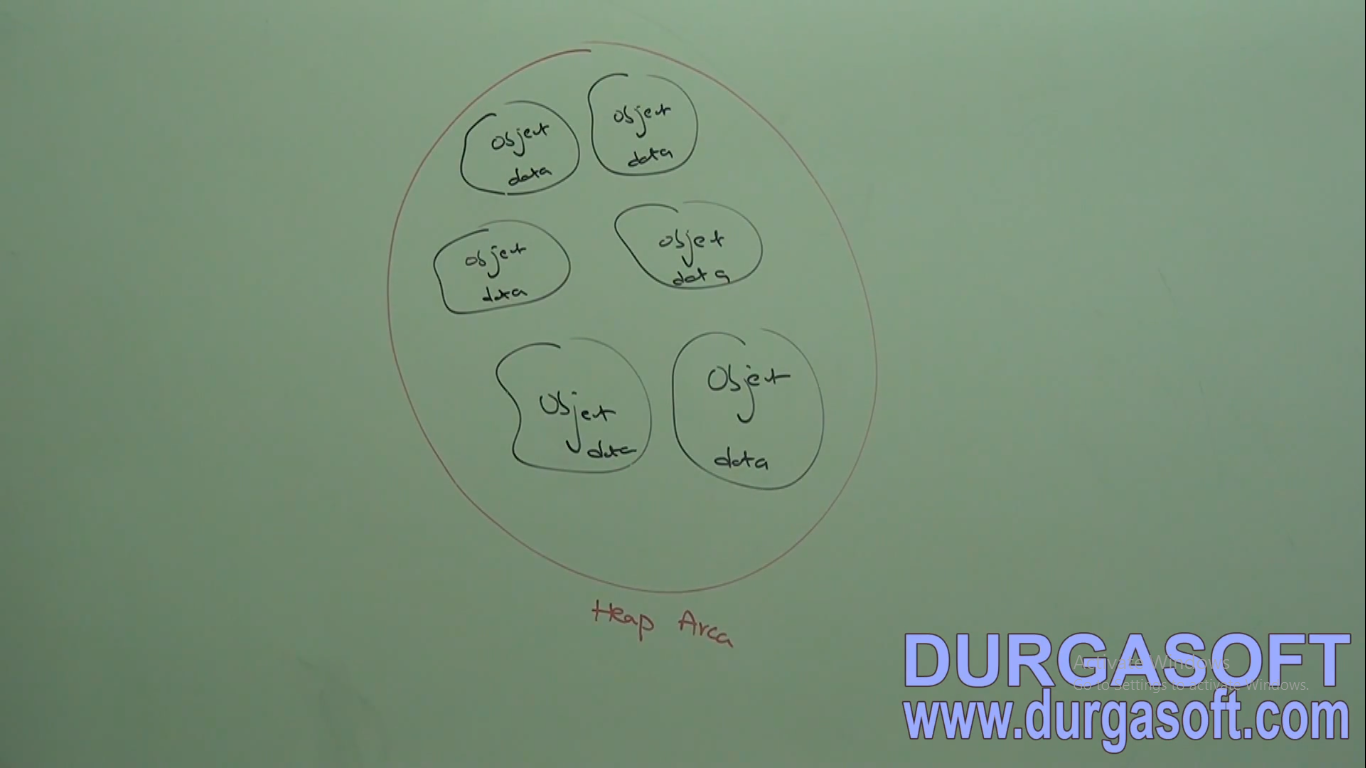 Object
data
Object
data
Object
data
Object
data
Object
data
Object
data
Heap Area
DURGASOFT
www.durgasoft.com
Activate Windows
Go to Settings to activate Windows.